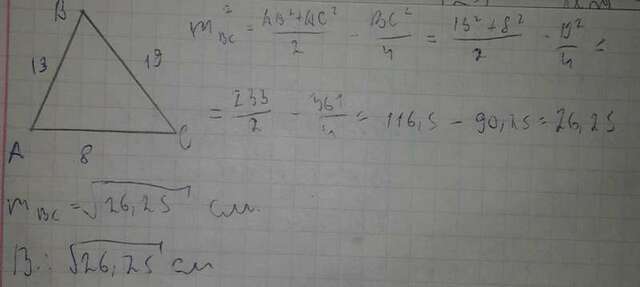 B
13
19
A
8
C
m²_BC = (AB²+AC²)/2 - BC²/4 = (13²+8²)/2 - 19²/4 =
= 233/2 - 361/4 = 116,5 - 90,25 = 26,25
m_BC = √26,25 см.
В.: √26,25 см